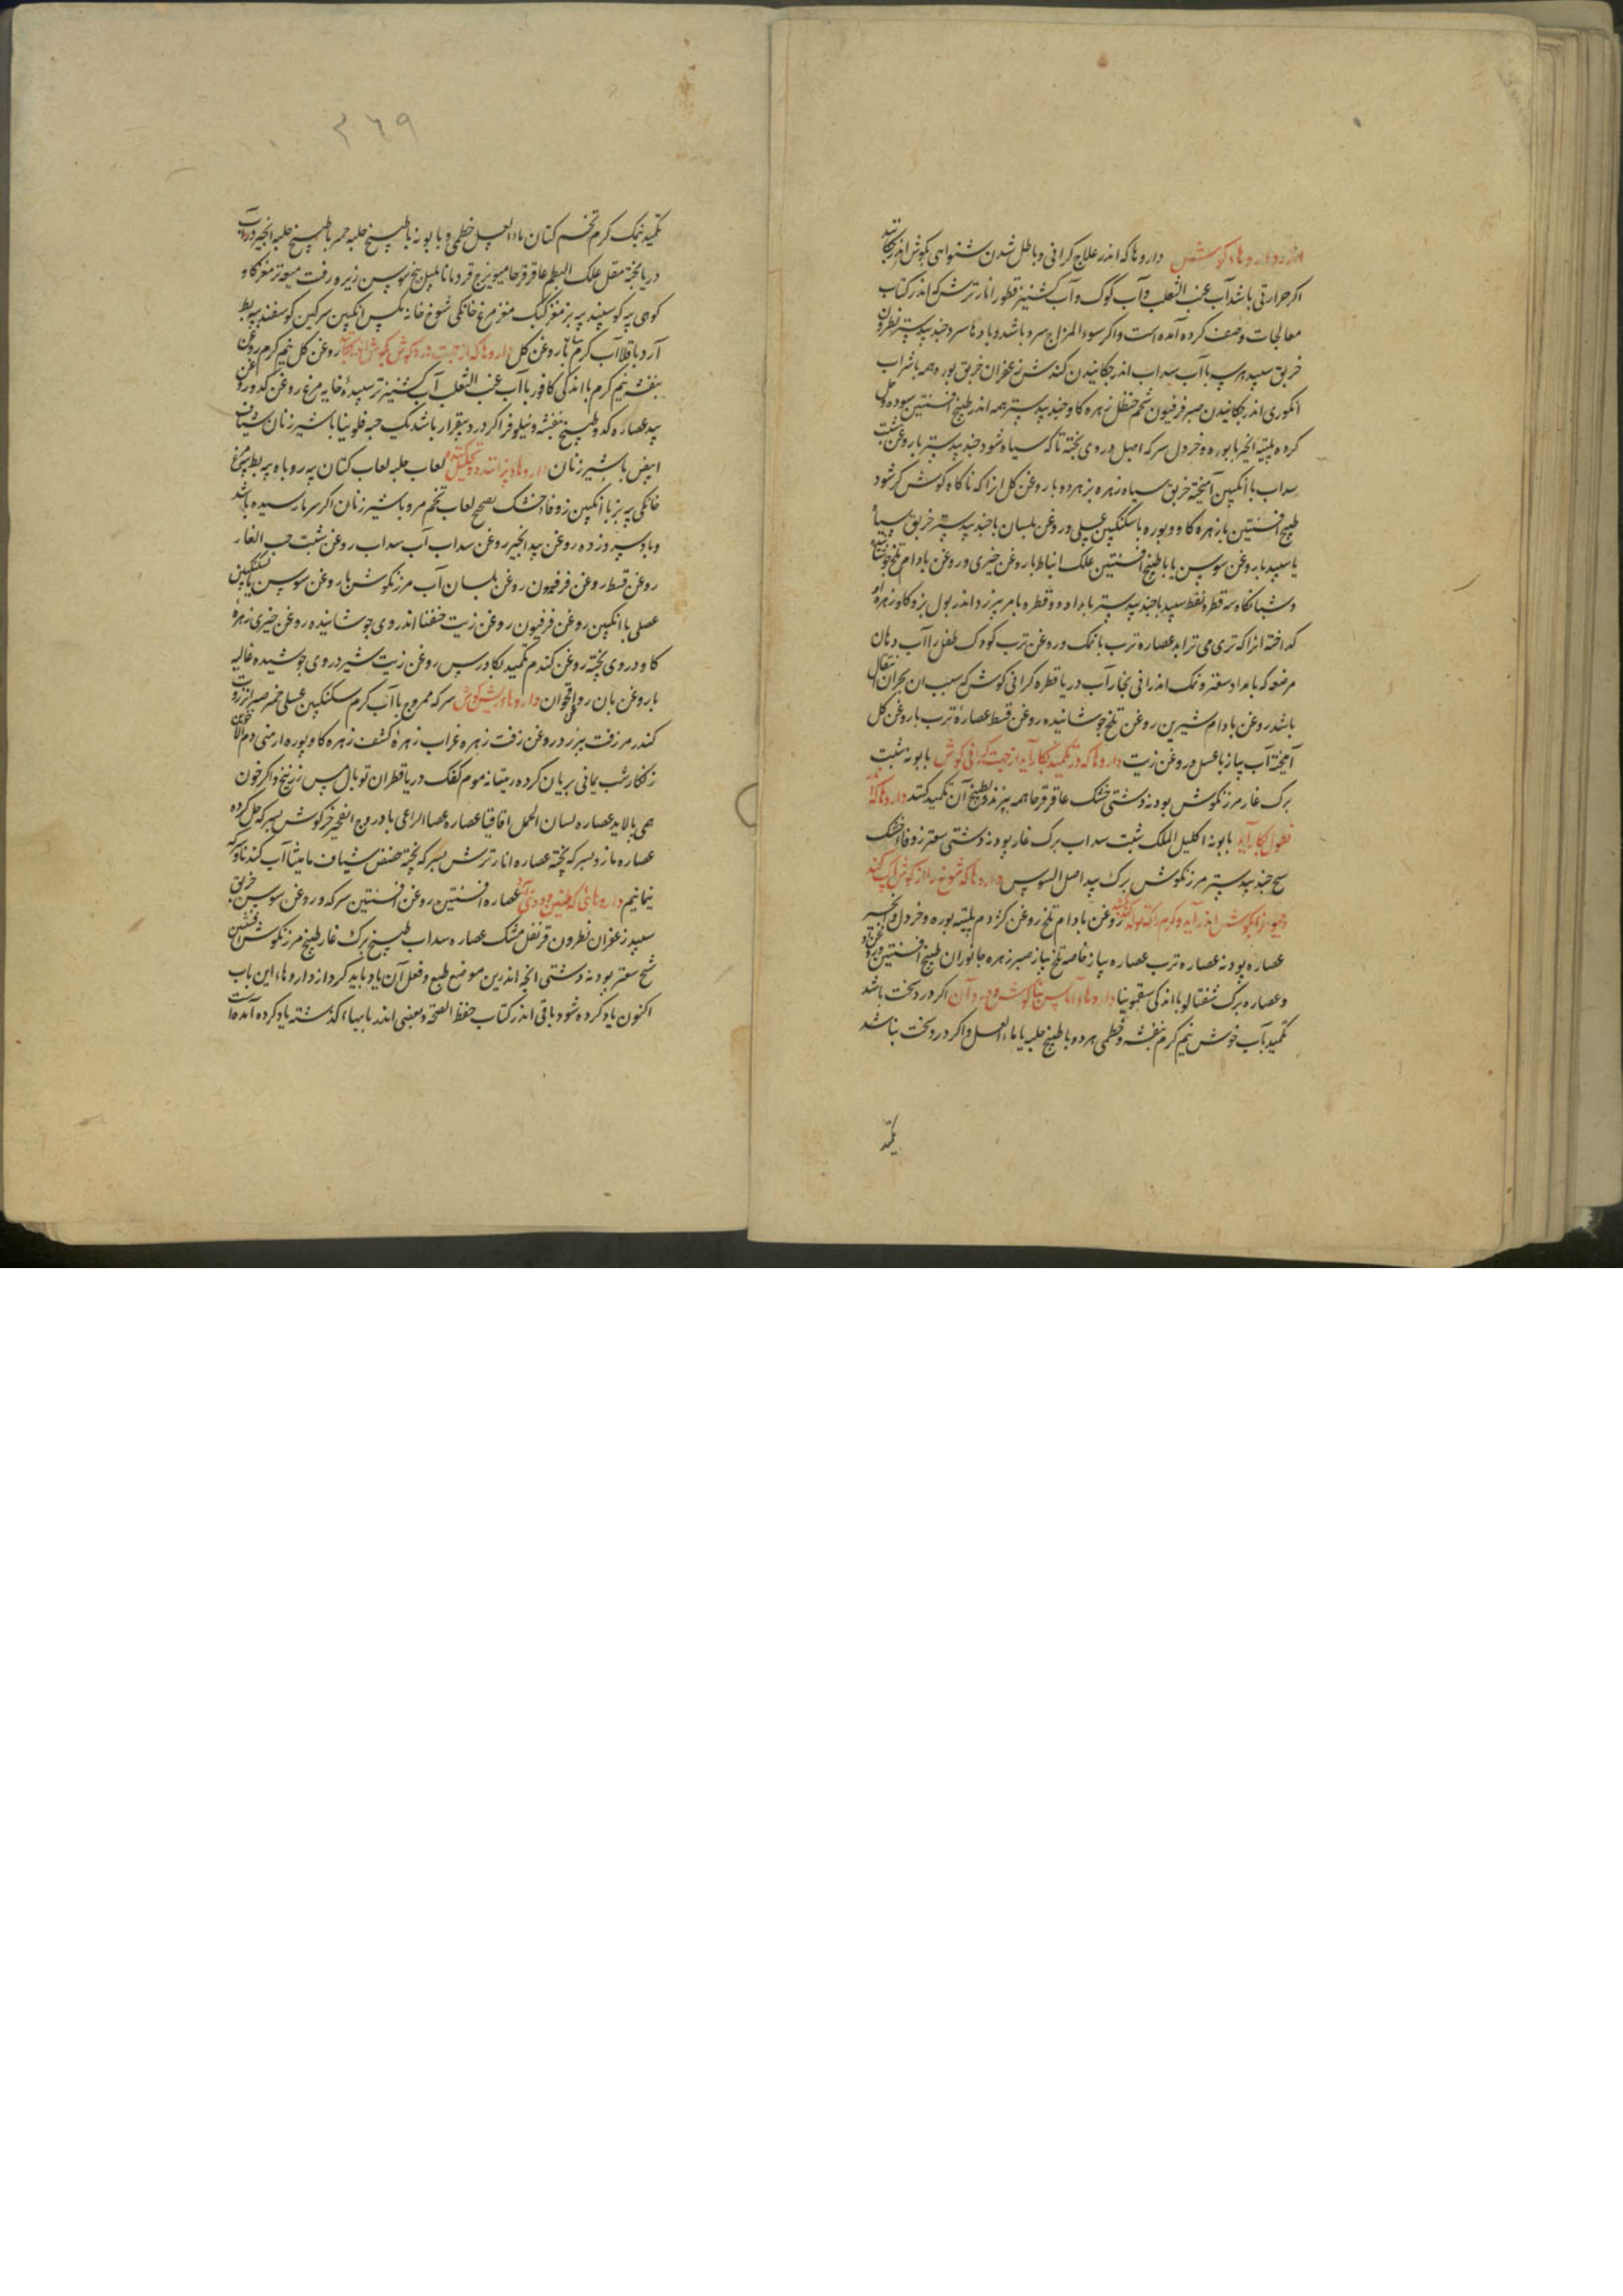 اندر داروهاء گوشش داروها که اندر علاج کرانی و باطل شدن شنوایی بکوش اندر چکانند
اگر حرارتی باشد آب عنب الثعلب و آب کوک و آب کشنیز قطور انار ترش که اندر کتاب
معالجات وصف کرده آمده است و اکر سوء المزاج سرد باشد و بادها سرد جندبیدستر نطرون
خربق سپید با آب سداب اندر چکانیدن کندش زعفران خربق بوره همه با شراب
انکوری اندر چکانیدن صبر فرفیون شحم حنظل زهره کاو جندبیدستر همه اندر طبیخ افسنتین سوده و حل
کرده پلیته انجیر با بوره و خردل سرکه ابهل در وی پخته تا که سیاه شود جندبیدستر با روغن شبت
سداب با انکبین آمیخته خربق سیاه زهره بز هر دو با روغن کل انرا که ناکاه کوش کر شود
طبیخ افسنتین با زهره کاو و بوره با سکنکبین عسلی و روغن بلسان با جندبیدستر خربق سیاه
یا سپید با روغن سوسن یا با طبیخ افسنتین علک انباط با روغن خیری و روغن بادام تلخ
و شبانکاه سه قطره نفط سپید با جندبیدستر بامداد دو قطره اندر بول بز و کاو زهره
کداخته انرا که تری می ترابد عصاره ترب با نمک و روغن ترب کودک طفل را آب دهان
مرضعه که بامداد سعتر و نمک اندرانی بخار آب دریا قطره کرانی کوش که سبب ان بحران انتقال
باشد روغن بادام شیرین روغن تلخ جوشانیده روغن قسط عصارۀ ترب با روغن کل
آمیخته آب پیاز با عسل و روغن زیت داروها که در تکمید بکار آید از جهت کرانی کوش بابونه شبت
برک غار مرزنکوش بودنه دشتی خشک عاقرقرحا همه بپزند و بطبیخ آن تکمید کنند داروها که اندر
نطول بکار آید بابونه اکلیل الملک شبت سداب برک غار پودنه دشتی سعتر زوفا خشک
شیح جندبیدستر مرزنکوش برک بید اصل السوس داروها که شوخ را از کوش پاک کند
روغن بادام تلخ روغن کژدم پلیته بوره و خردل و انجیر
عصاره پودنه عصاره ترب عصاره پیاز خاصه تلخ پیاز صبر زهره جانوران طبیخ افسنتین
و عصاره برک شفتالو با اندکی سقمونیا داروهاء آماس بناکوش و درد آن اکر درد سخت باشد
تکمید بآب خوش نیم کرم بنفشه و خطمی هر دو با طبیخ حلبه یا ماء العسل و اکر درد سخت نباشد
تکمید
٣٦٩
تکمید نمک کرم تخم کتان ماء العسل خطمی و بابونه با طبیخ حلبه با طبیخ حلبه انجیر در آب
دریا پخته مقل علک البطم عاقرقرحا میویزج قردمانا پلپل بیخ سوسن زیره زفت میعه تر مغز کاو
کوهی پیه کوسپند پیه بز مغز کبک مغز مرغ خانکی شوخ خانه مکس انکبین سرکین کوسفند پیه بط
آرد باقلا آب کرم با روغن کل داروها که از جهت درد کوش بکوش اندر چکانند روغن کل نیم کرم روغن
بنفشه نیم کرم با اندکی کافور با آب عنب الثعلب آب کشنیز تر سپیدۀ خایه مرغ روغن کدو روغن
بید عصاره کدو طبیخ بنفشه و نیلوفر اکر درد بیقرار باشد یک حبه فلونیا با شیر زنان شیاف
ابیض با شیر زنان داروهاء پزاننده و تحلیل کننده لعاب حلبه لعاب کتان پیه روباه پیه بط پیه مرغ
خانکی پیه بز با انکبین زوفا خشک لعاب تخم مرو با شیر زنان اکر سرما رسیده باشد
و باد سپر وزده روغن بیدانجیر روغن سداب آب سداب روغن شبت حب الغار
روغن قسط روغن فرفیون روغن بلسان آب مرزنکوش با روغن سوسن با سکنکبین
عصلی با انکبین روغن فرفیون روغن زیت خنفسا اندر وی جوشانیده روغن خیری زهره
کاو در وی پخته روغن کندم تکمید بکاورس روغن زیت شیر در وی جوشیده غالیه
با روغن بان روغن اقحوان داروهاء ریش کوش سرکه ممزوج با آب کرم سکنکبین عسلی خمر صبر انزروت
کندر مر زفت بیزرد روغن زفت زهره غراب زهرۀ کشف زهره کاو بوره ارمنی دم الاخوین
زنکار شب یمانی بریان کرده ریتیانه موم کفک دریا قطران توبال مس زرنیخ و اکر خون
همی پالاید عصاره لسان الحمل اقاقیا عصاره عصا الراعی بادروج انفحه خرکوش بسرکه حل کرده
عصاره مازو بسرکه پخته عصاره انار ترش بسرکه پخته حضض شیاف مامیثا آب کندنا و سرکه
نیمانیم داروهائی که طنین و دوی آرد عصاره افسنتین روغن افسنتین سرکه و روغن سوسن خربق
سپید زعفران نطرون قرنفل مشک عصاره سداب طبیخ برک غار طبیخ مرزنکوش افسنتین
شیح سعتر بودنه دشتی انچه اندرین موضع طبع و فعل آن یاد باید کرد از داروهاء این باب
اکنون یاد کرده شود و باقی اندر کتاب حفظ الصحه و بعضی اندر بابهاء کذشته یاد کرده آمده است